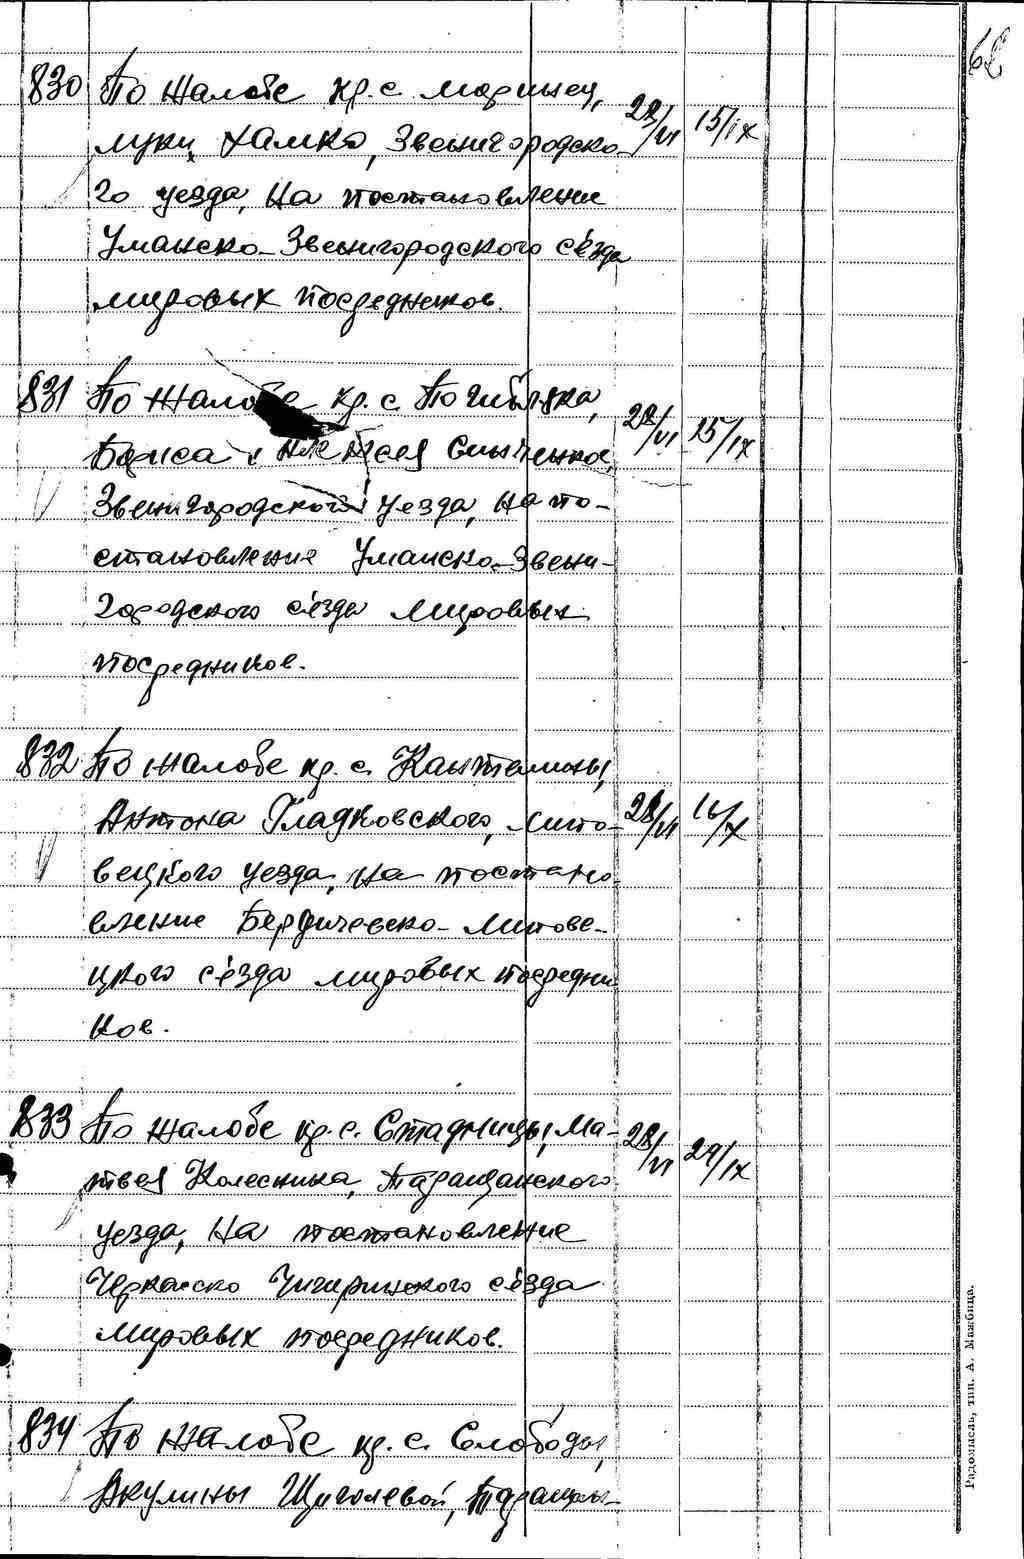 62
830 По жалобе кр. с. Моринец,
Луки Хамка, Звенигородско-
28/VI 15/IX
го уезда, на постановление
Уманско-Звенигородского съезда
мировых посредников.
831 По жалобе кр. с. Погибляка,
28/VI 15/IX
Бориса и Алексея Синченка,
Звенигородского уезда, на по-
становление Уманско-Звени-
городского съезда мировых
посредников.
832 По жалобе кр. с. Кантелины,
Антона Гладковского, Липо-
28/VI 16/X
вецкого уезда, на постано-
вление Бердичевско-Липове-
цкого съезда мировых посредни
ков.
833 По жалобе кр. с. Стадницы, Ма-
28/VI 29/IX
твея Колесника, Таращанского
уезда, на постановление
Черкасско Чигиринского съезда
мировых посредников.
834 По жалобе кр. с. Слободы,
Акулины Щиголевой, Таращан-
Радомысль, тип. А. Мажбица.